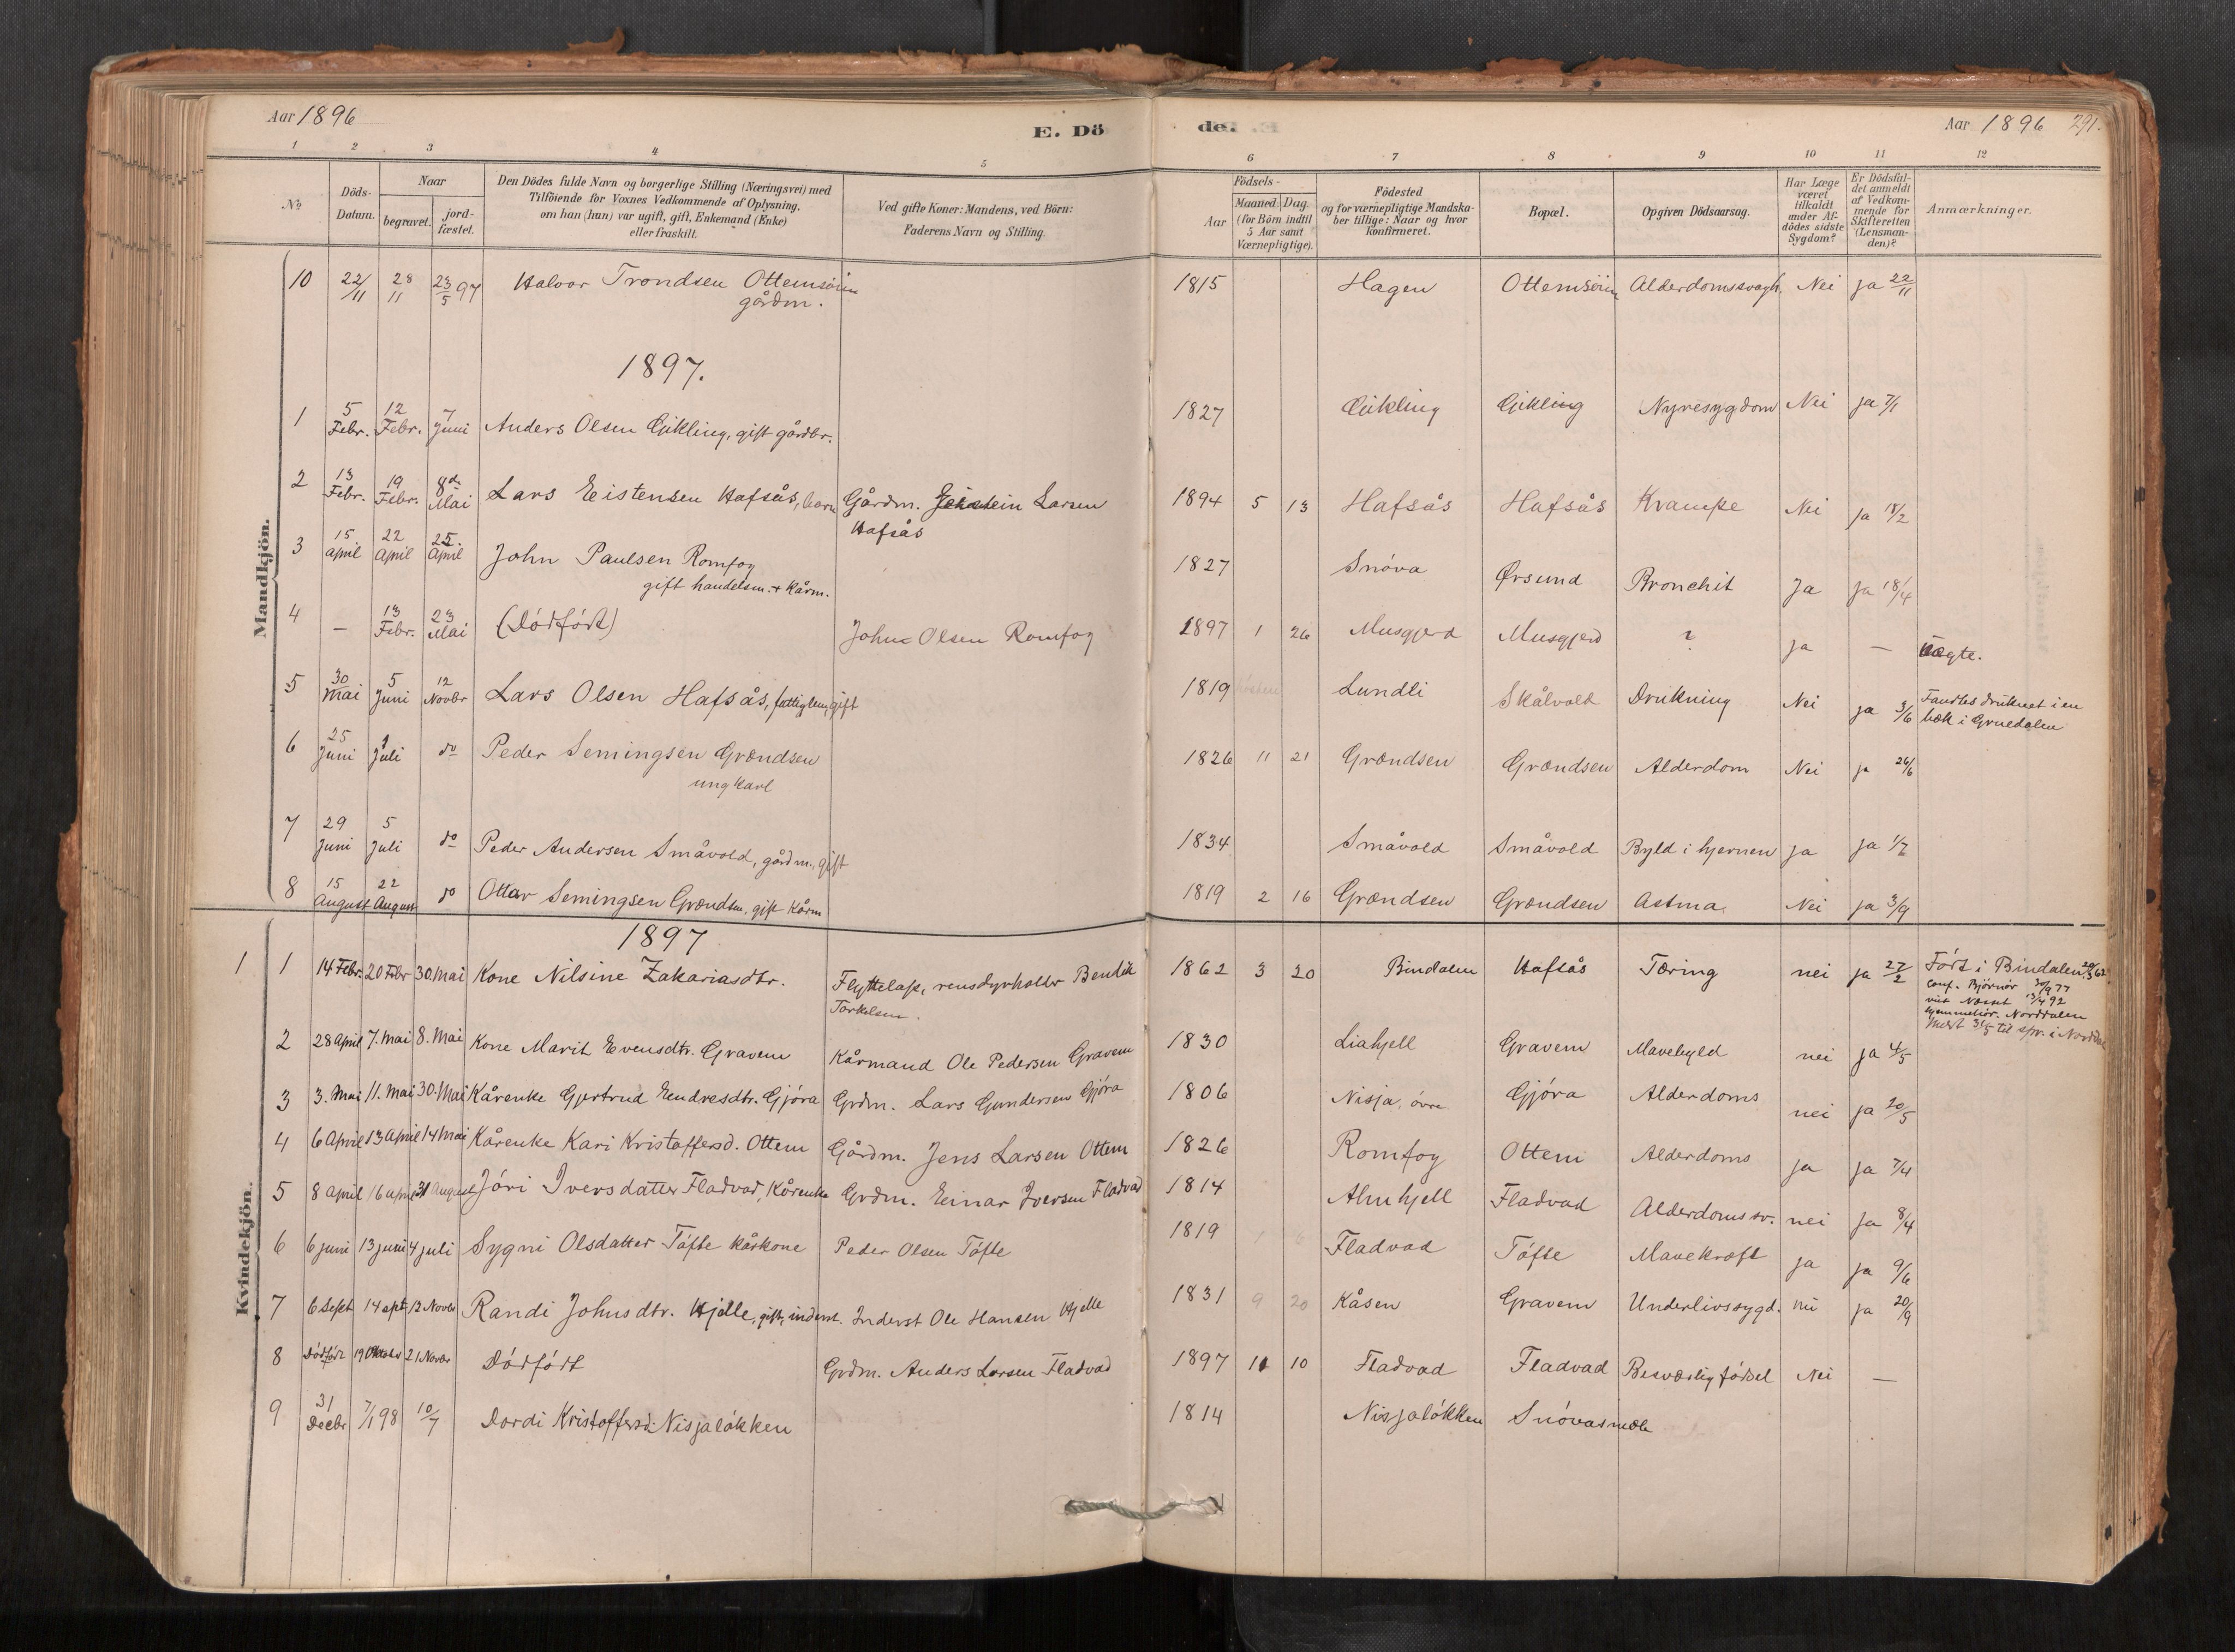 Aar 1896
E. Dö
de.
Aar 1896 291.
1 2 3 4 5 6 7 8 9 10 11 12
No
Döds-Datum.
Naar
begravet.
jord-fæstet.
Den Dödes fulde Navn og borgerlige Stilling (Næringsvei) med
Tilföiende for Voxnes Vedkommende af Oplysning,
om han (hun) var ugift, gift, Enkemand (Enke)
eller fraskilt.
Ved gifte Koner: Mandens, ved Börn:
Faderens Navn og Stilling.
Födsels-
Aar
Maaned. Dag.
(for Börn indtil
5 Aar samt
Værnepligtige).
Födested
og for værnepligtige Mandska-
ber tillige: Naar og hvor
konfirmeret.
Bopæl.
Opgiven Dödsaarsag.
Har Læge
været
tilkaldt
under Af-
dödes sidste
Sygdom?
Er Dödsfal-
det anmeldt
af Vedkom-
mende for
Skifteretten
(Lensman-
den)?
Anmærkninger.
Mandkjön.
10 22/11 28/11 23/5 97 Halvor Trondsen Ottemsöien gårdm. 1815 Hagen Ottemsöien Alderdomssvagh. Nei ja 22/11
1897.
1 5 Febr. 12 Febr. 7 Juni Anders Olsen Gikling, gift gårdbr. 1827 Gikling Gikling Nyresygdom Nei ja 7/1
2 13 Febr. 19 Febr. 8de Mai Lars Eistensen Hafsås, barn Gårdm. Eistein Larsen Hafsås 1894 5 13 Hafsås Hafsås Krampe Nei ja 18/2
3 15 April 22 April 25. April John Paulsen Romfog gift handelsm. + Kårm. 1827 Snöva Örsund Bronchit Ja ja 18/4
4 — 13 Febr. 23 Mai (Dödfödt) John Olsen Romfog 1897 1 26 Musgjerd Musgjerd ? ja — uægte.
5 30 Mai 5 Juni 12 Novbr Lars Olsen Hafsås, fattiglem, gift 1819 Lundli Skålvolt Drukning Nei ja 3/6 Fandtes druknet i en bæk i Gruedalen
6 25 Juni 1 Juli do Peder Semingsen Grændsen ungkarl 1826 11 21 Grændsen Grændsen Alderdom Nei ja 26/6
7 29 Juni 5 Juli do Peder Andersen Småvold, gårdm., gift 1834 Småvold Småvold Byld i hjernen ja ja 1/7
8 15 August 22 August do Ottar Semingsen Grændsen, gift Kårm 1819 2 16 Grændsen Grændsen Astma Nei ja 3/9
Kvindekjön.
1897
1 1 14 Febr. 20 Febr 30. Mai Kone Nilsine Zakariasdtr. Flyttelap, rensdyrholder Bendik Torkelsen. 1862 3 20 Bindalen Hafsås Tæring nei ja 27/2 Födt i Bindalen 20/3 62
conf. Björnör 30/9 77
viet Næsset 13/4 92
hjemmehör. Norddalen
Medt 31/5 til spr. i Norddal
2 28 April 7. Mai 8. Mai Kone Marit Evensdtr. Gravem Kårmand Ole Pedersen Gravem 1830 Liahjell Gravem Mavebyld nei ja 4/5
3 3. Mai 11. Mai 30. Mai Kårenke Gjertrud Endresdtr. Gjöra Grdm. Lars Gundersen Gjöra 1806 Nisja, övre Gjöra Alderdoms nei ja 20/5
4 6 April 13 April 14 Mai Kårenke Kari Kristoffersd. Ottem Gårdm. Jens Larsen Ottem 1826 Romfog Ottem Alderdoms ja ja 7/4
5 8 April 16 April 31 August Jöri Iversdatter Fladvad, Kårenke Grdm. Einar Iversen Fladvad 1814 Almhjell Fladvad Alderdomssv. nei ja 8/4
6 6 juni 13 juni 4 juli Sygni Olsdatter Töfte kårkone Peder Olsen Töfte 1819 Fladvad Töfte Mavekræft ja ja 9/6
7 6 Sept 14 Spt 13 Novbr Randi Johnsdtr. Hjelle, gift, inderst. Inderst Ole Hansen Hjelle 1831 9 20 Kåsen Gravem Underlivssygd. nei ja 20/9
8 Dödfödt 19 Oktober 21 Novbr Dödfödt Grdm. Anders Larsen Fladvad 1897 10 10 Fladvad Fladvad Besværlig födsel Nei —
9 31 Decbr 7/1 98 10/7 Dordi Kristoffersd. Nisjalökken 1814 Nisjalökken Snövasmæle